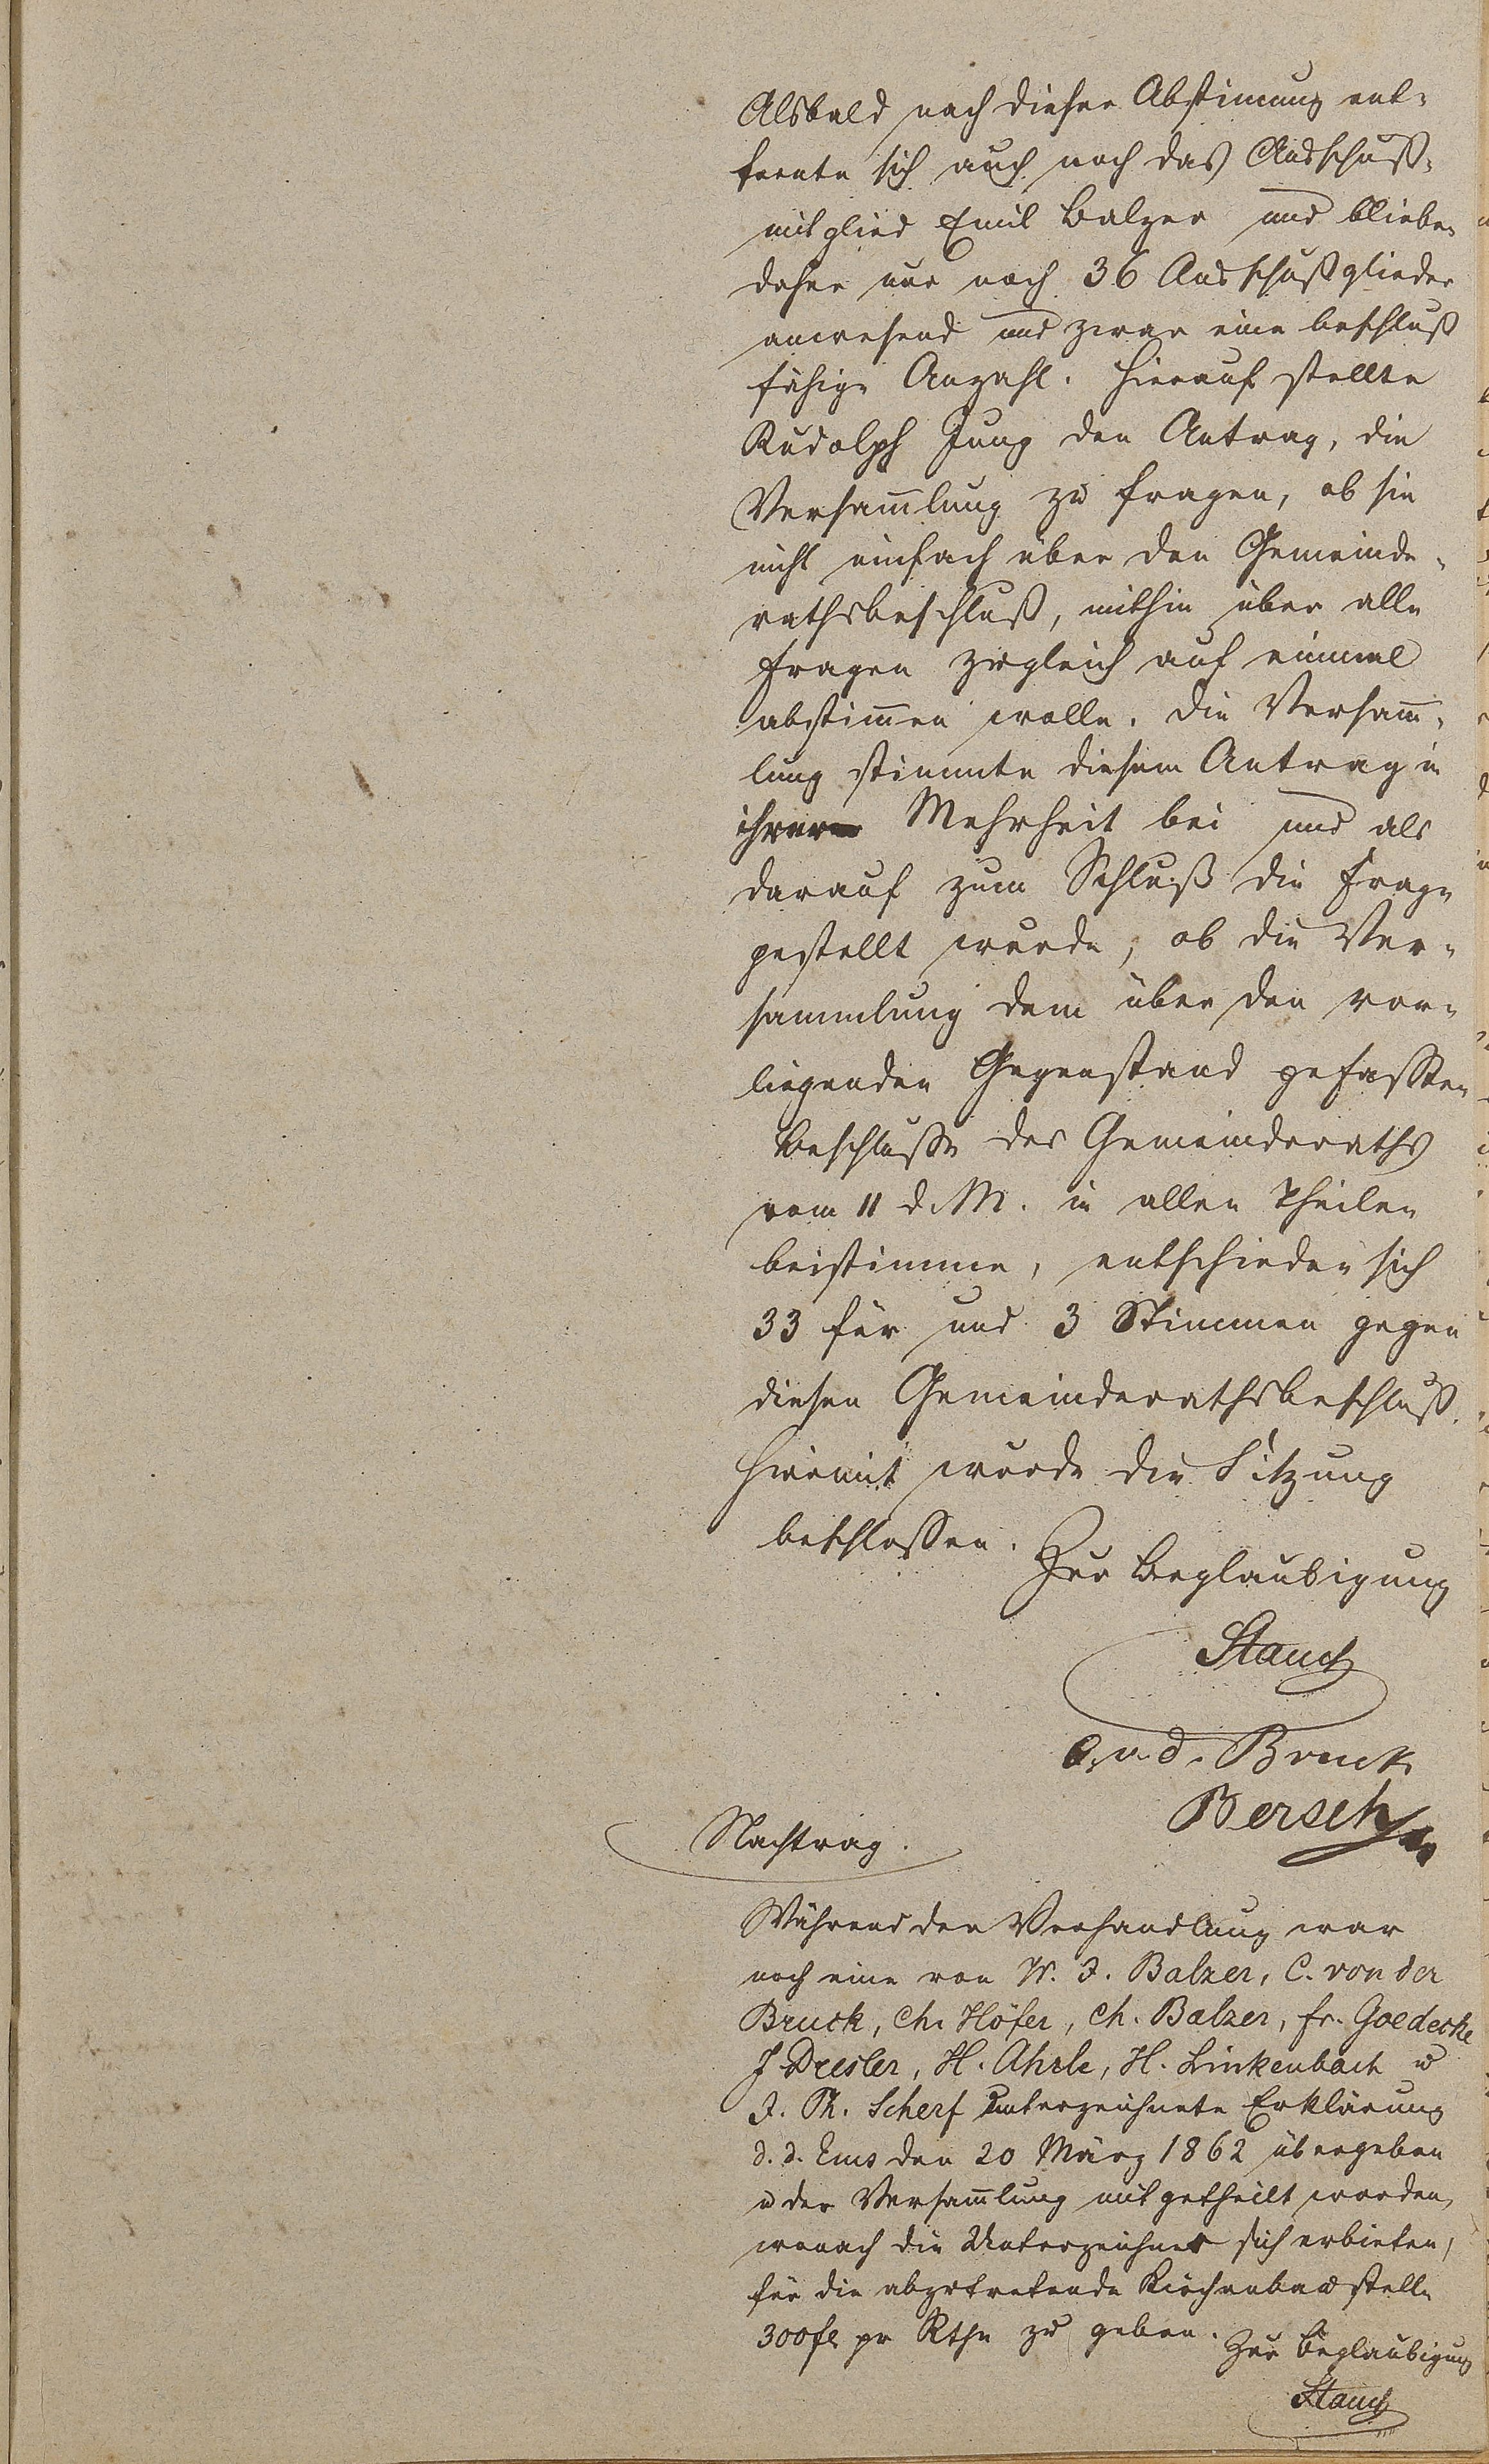 Alsbald nach dieser Abstimung ent-
fernte sich auch noch das Ausschuß-
mitglied Emil Balzer und blieben
daher nur noch 36 Ausschußglieder
anwesend und zwar eine beschluß
fähige Anzahl. Hierauf stellte
Rudolph Jung den Antrag, die
Versam̄lung zu fragen, ob sie
nicht einfach über den Gemeinde-
rathsbeschluß, mithin über alle
Fragen zugleich auf einmal
abstim̄en wolle. Die Versam̄-
lung stimmte diesem Antrag in
ihrer Mehrheit bei und als
darauf zum Schluß die Frage
gestellt wurde, ob die Ver-
sammlung dem über den vor-
liegenden Gegenstand gefaßten
Beschlusse des Gemeinderaths
vom 11 d. M. in allen Theilen
beistimme, entschieden sich
33 für und 3 Stimmen gegen
diesen Gemeinderathsbeschluß.
Hiermit wurde die Sitzung
beschlossen.
Zur Beglaubigung
Stauch
v. d. Bruck
Bersch
Nachtrag.
Während der Verhandlung war
noch eine von W. J. Balzer, C. von der
Bruck, Ch. Höfer, Ch. Balzer, Fr. Goedecke
J Dresler, H. Ahrle, H. Linkenbach u
J. Ph. Scherf unterzeichnete Erklärung
d. d. Ems den 20 März 1862 übergeben
u der Versam̄lung mitgetheilt worden,
wonach die Unterzeichner sich erbieten,
für die abzutretende Kirchenbaustelle
300 fl pr Rthe zu geben.
Zur Beglaubigung
Stauch